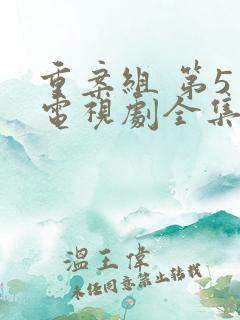 重案組 第5
電視劇全集
溫王偉
未經同意禁止轉載